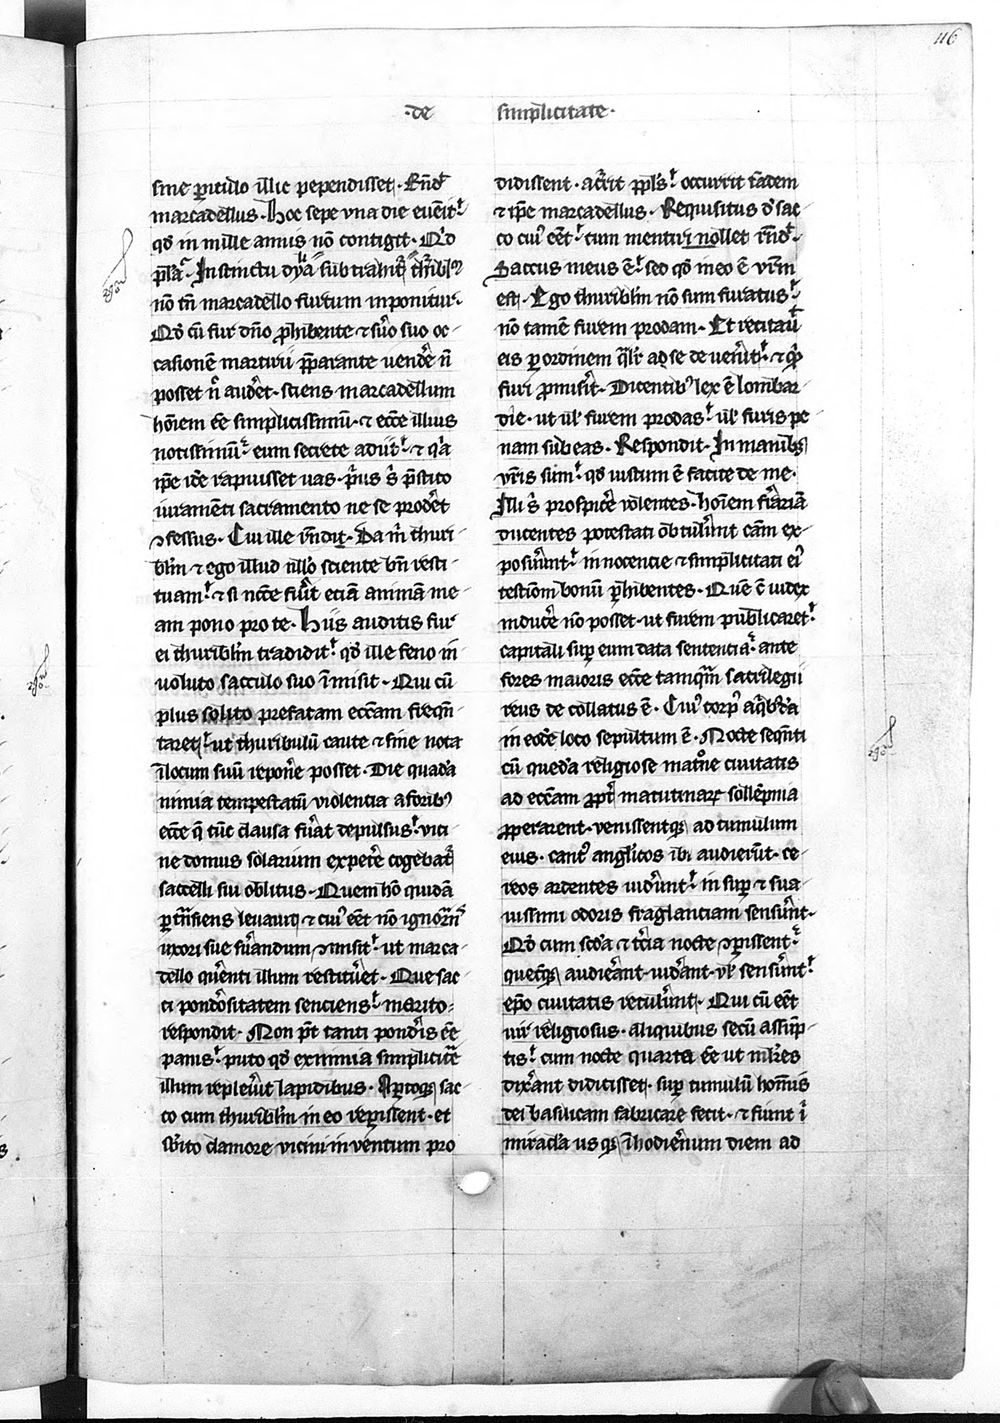 116
·de simplicitate·
sine periculo illic pependisset· Rñd
marcadellus· Hoc sepe una die euenit
qd in mille annis nō contigit· Qd
nō tñ marcadello furtum inponitur·
Qd cū fur dño phibente ⁊ suo oc-
casionē martirii pparante uendere ñ
posset ñ auderet· sciens marcadellum
hoīem ēe simplicissimū· ⁊ ecce illius
notissimus eum secrete adiit ⁊ qa
ipe ide rapuisset uas· pus pstito
iuramēti sacramento ne se proderet
ɔfessus· Cui ille rñdit· Da m thuri
blm ⁊ ego illud nullo sciente bñ resti
tuam ⁊ si ncē fuit eciā animā me-
am pono pro te· Hiis auditis fur
ei thuriblm tradidit qd ille feno in
uoluto sacculo suo īmisit· Qui cū
plus solito prefatam eccām freqn
taret ut thuribulū caute ⁊ sine nota
ī locum suū reponere posset· Die quadā
nimia tempestatū violentia a foribus
ecce q tūc clausa fuerat depulsus vici
ne domus solarium expetere cogebat
saccelli sui oblitus· Quem ho quidā
ptnsiens leuauit ⁊ cui eēt nō ignorans
uxori sue seruandum ɔmisit ut marca-
dello querenti illum restitueret· Que sac
ci ponderositatem senciens marito
respondit· Non pōt tanti ponderis ēe
panis puto qd ex nimia simplicitate
illum repleuerit lapidibus· Apertoque sac-
co cum thuriblm in eo reperissent· et
subito clamore vicini inuentum pro
didissent· acurrit ppls occurrit tādem
⁊ ipe marcadellus· Requisitus de sac-
co cui eēt cum mentiri nollet rñd
Saccus meus ē sed qd in eo ē vrm
est· Ego thuriblm nō sum furatus
nō tamē furem prodam· Et recitauit
eis per ordinem qlr ad se deuenerit ⁊ qd
furi promiserit· Dicentibus lex ē lombar-
die· ut ul furem prodas ul furis pe
nam subeas· Respondit· In manibus
vris sum qd iustum ē facite de me·
Illi prospicere volentes· hoīem
ducentes potestati obtulerunt cām ex-
posuerunt innocencie ⁊ simplicitati ei
testiom bonū phibentes· Quē ē iudex
inducere nō posset· ut furem publicaret
capitali super eum data sentencia ante
fores maioris ecce tamqm sacrilegii
reus decollatus ē· Cui corp
in eodē loco sepultum ē· Nocte seqnti
cū quedā religiose matrone ciuitatis
ad eccām matutinarum sollempnia
pperarent· venissentque ad tumulum
eius· cantus anglicos ibi audierunt· ce-
reos ardentes uiderunt insuper ⁊ sua-
uissimi odoris fraglantiam senserunt·
Qd cum scda ⁊ tercia nocte ɔperissent
quecunque audierant· uiderant· vl senserunt
epo ciuitatis retulerunt· Qui cū eēt
uir religiosus· aliquibus secū assump-
tis cum nocte quarta ēe ut mulieres
dixerant didicisset· super tumulū hominis
dei basilicam fabricare fecit· ⁊ fiunt ī
miracula usque ī hodiernum diem ad